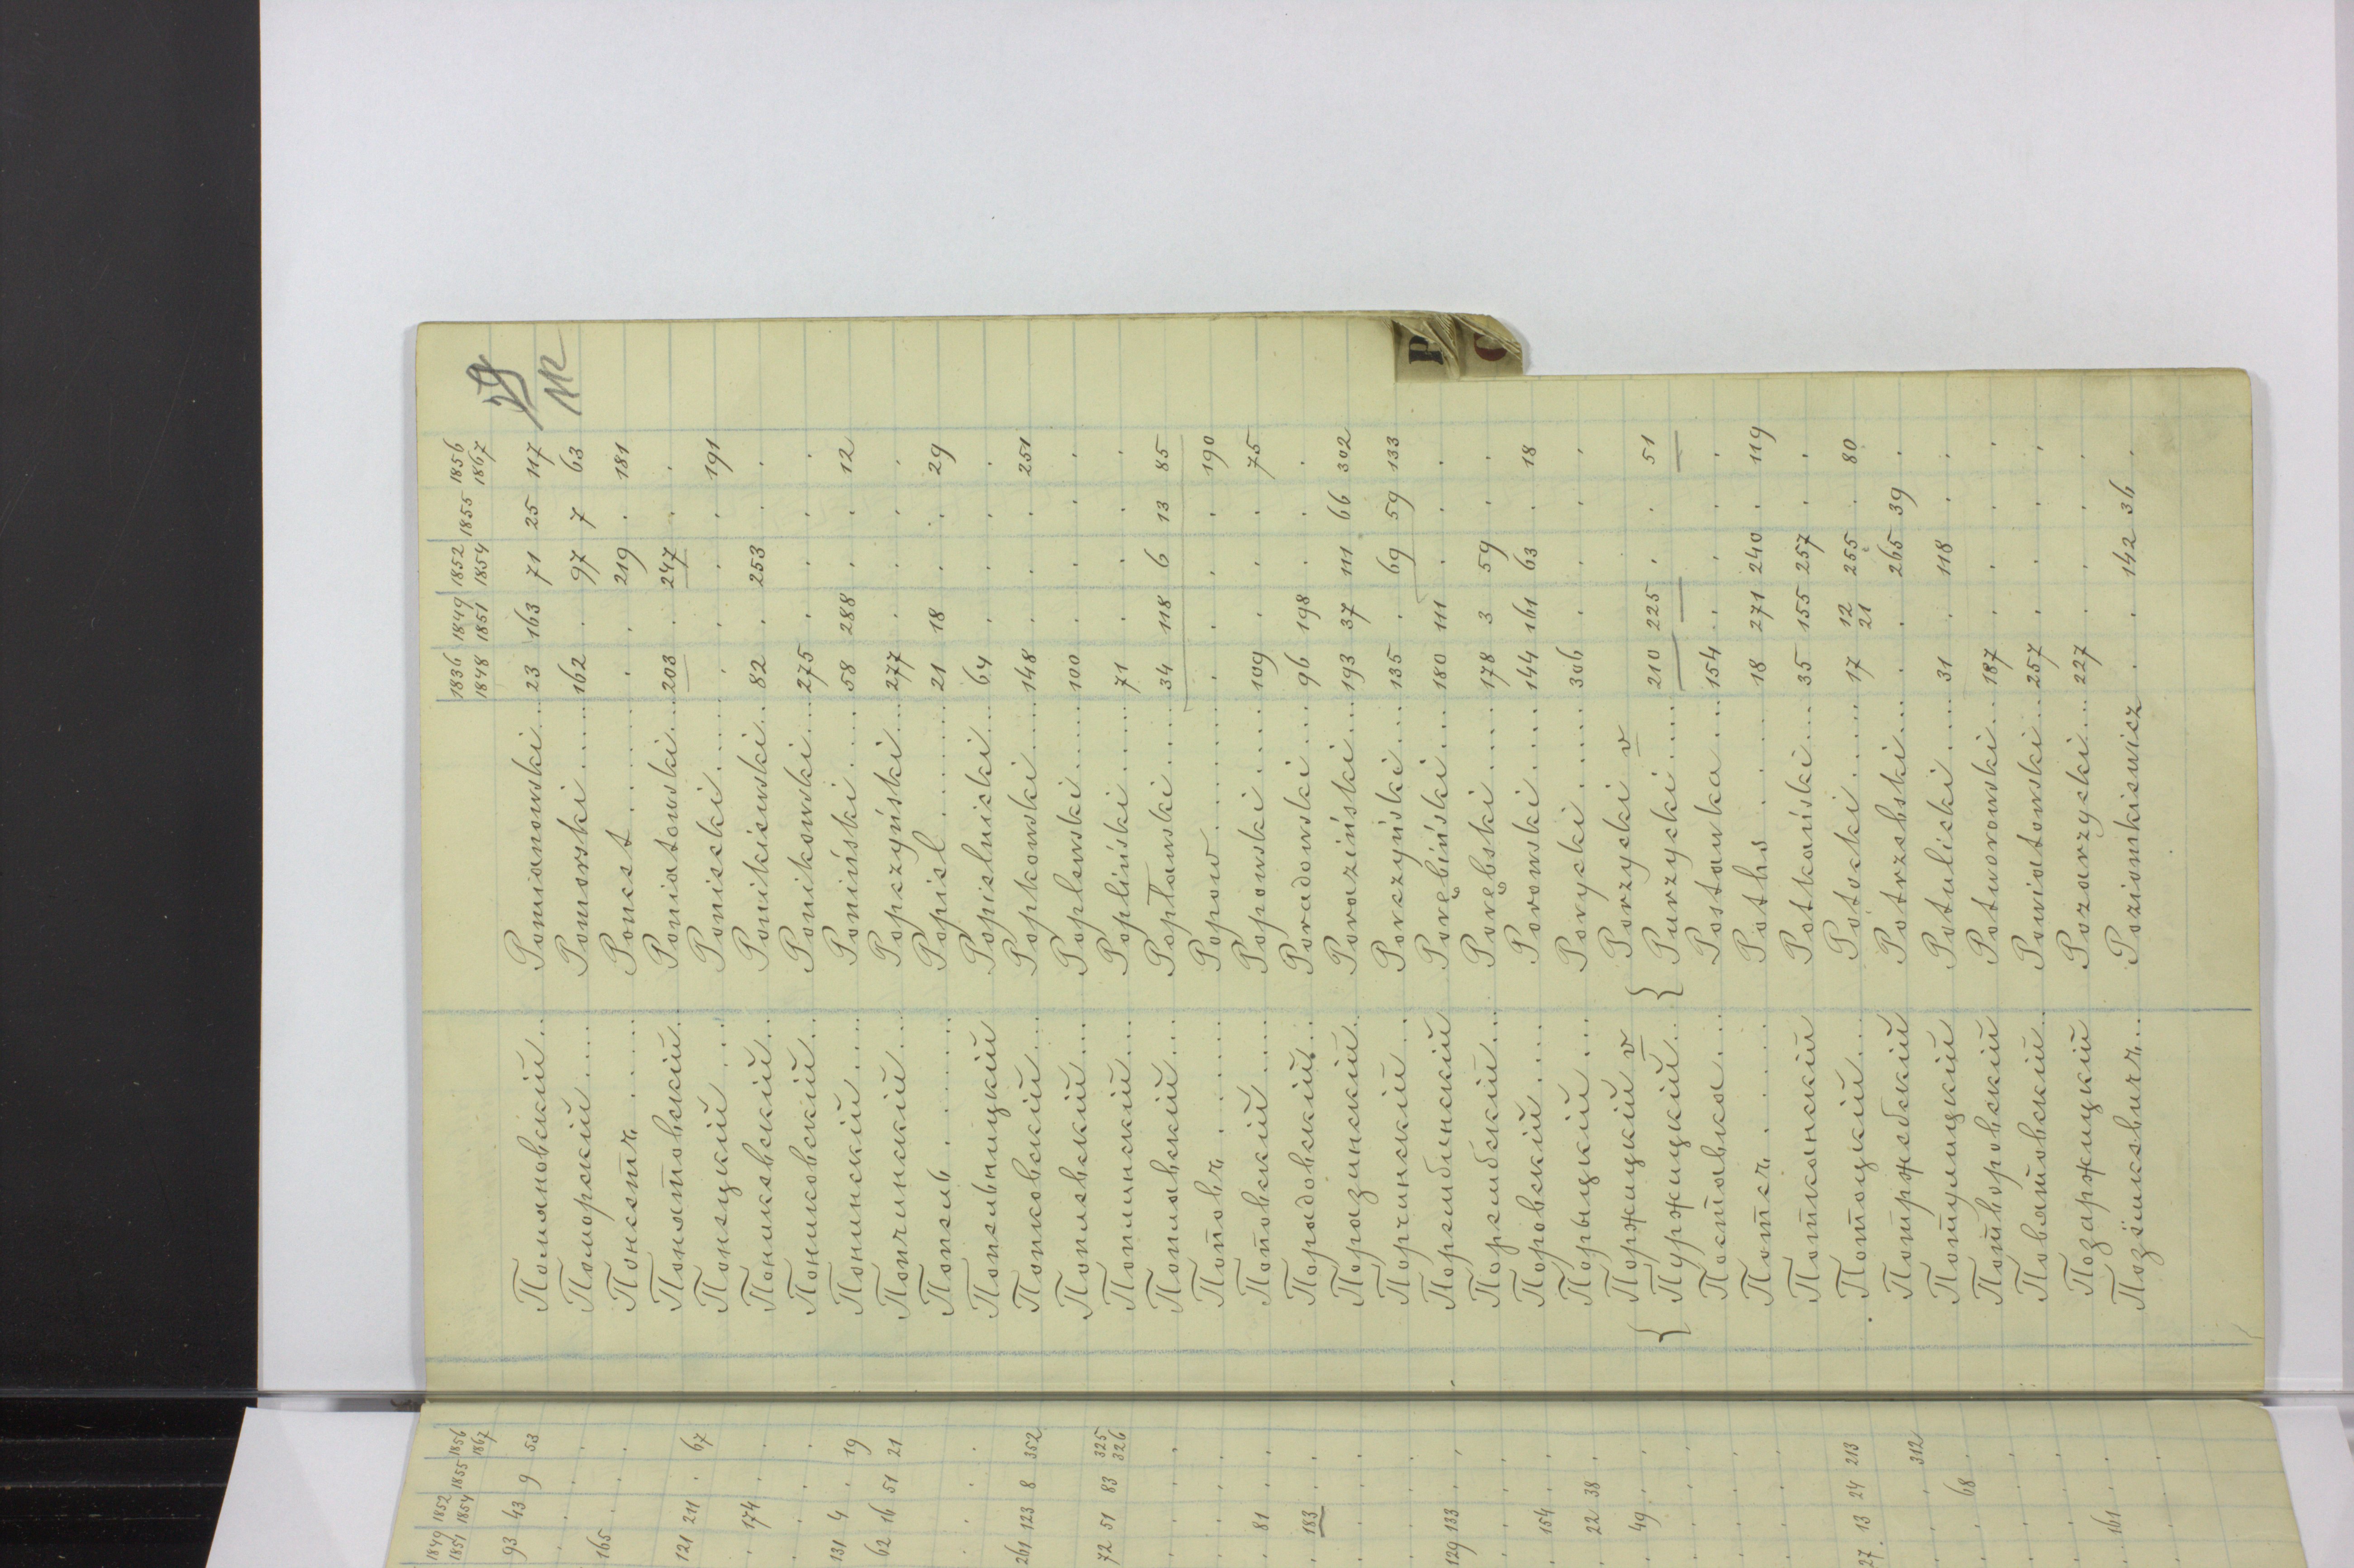 1836 1849 1852 1855 1856
1848 1851 1854 1867
29
Помяновскій .. Pomianowski ... 23 163 71 25 117
Поморскій .... Pomorski ..... 162 . 97 7 63
Понсетъ .... Poncet ...... . . 219 . 181
Понятовскій .. Poniatowski ... 203 . 247 . .
Понецкій .... Poniecki ..... . . . . 191
Поникевскій .. Ponikiewski .. 82 . 253 . .
Пониковскій .. Ponikowski ... 275 . . . .
Понинскій .... Poniński ..... 58 288 . . 12
Попчинскій ... Popczyński ... 277 . . . .
Попель ...... Popiel ....... 21 18 . . 29
Попельницкій Popielnicki ... 64 . . . .
Попковскій ... Popkowski .... 148 . . . 251
Поплевскій ... Poplewski ..... 100 . . . .
Поплинскій ... Popliński ..... 71 . . . .
Поплавскій ... Popławski .... 34 118 6 13 85
Поповъ ...... Popow ....... . . . . 190
Поповскій .... Popowski ..... 109 . . . 75
Порадовскій .. Poradowski ... 96 198 . . .
Поразинскій .. Poraziński ... 193 37 111 66 302
Порчинскій ... Porczyński ... 135 . 69 59 133
Порембинскій Porębiński ... 180 111 . . .
Порембскій ... Porębski ..... 178 3 59 . .
Поровскій .... Porowski ..... 144 161 63 . 18
Порыцкій .... Porycki ...... 306 . . . .
{ Поржицкій v { Porzycki v
Пуржицкій .. Purzycki .... 210 225 . . 51
Поставка .... Postawka ... 154 . . . .
Потсъ ..... Poths ...... 18 271 240 . 119
Потканскій Potkański ... 35 155 257 . .
Потоцкій .... Potocki ...... 17 12 255 . 80
21
Потржебскій Potrzebski ... . . 265 39 .
Потулицкій Potulicki .... 31 . 118 . .
Потворовскій Potworowski .. 187 . . . .
Повятовскій .. Powiatowski .. 257 . . . .
Позаржицкій Pozarzycki ... 227 . . . .
Pozionkiewicz . . 142 36 .
P
1849 1852 1855 1856
1851 1854 1867
93 43 9 53
165 . . .
121 211 . 67
. 174 . .
131 4 . 19
62 16 51 21
261 123 8 352
72 51 83 325
326
. 81 . .
. 183 . .
129 133 . .
. 154 . .
. 22 38 .
. 49 . .
27 13 24 213
. . . 312
. . 68 .
161 . .